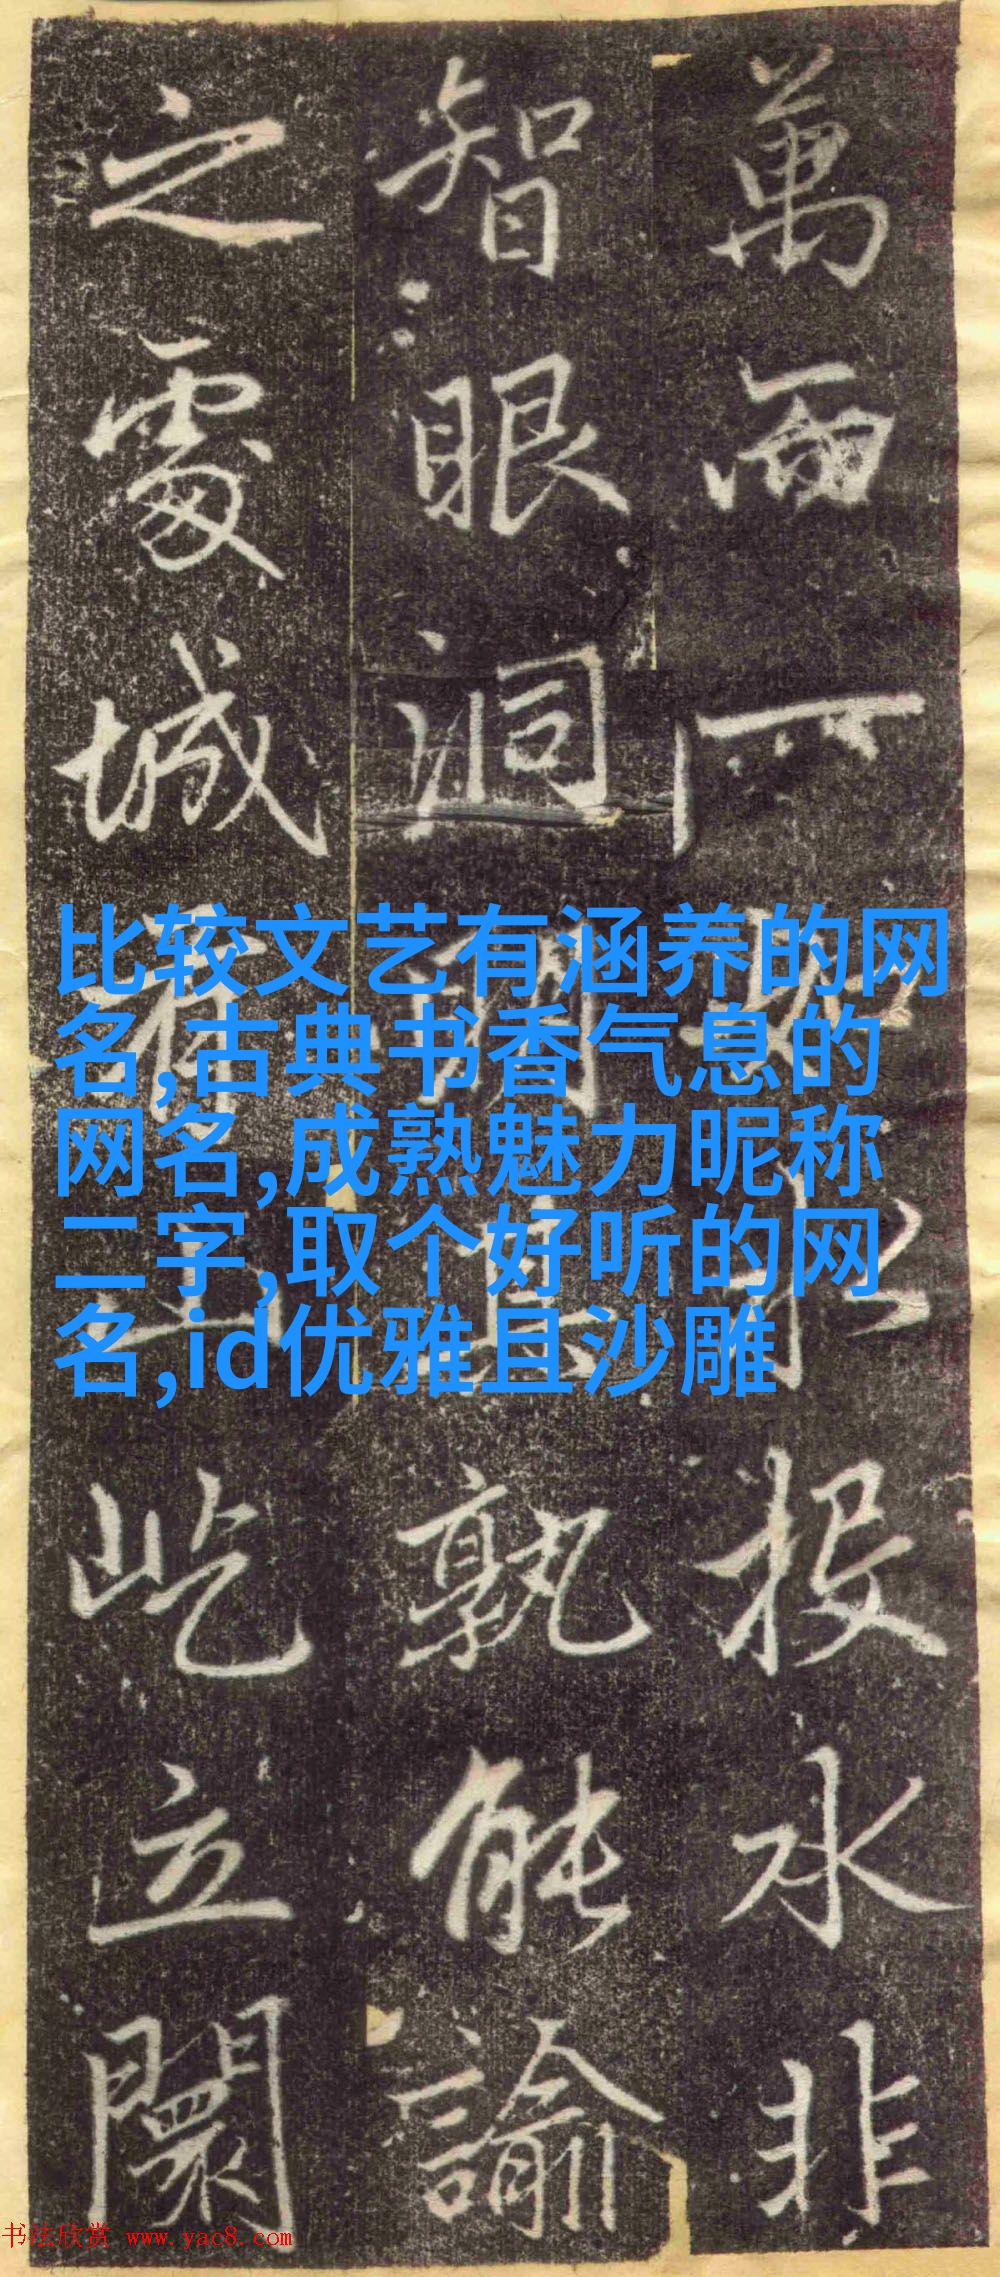 萬而一投水非
智眼洞孰能諭
之處城屹立闤
比较文艺有涵养的网
名,古典书香气息的
网名,成熟魅力昵称
二字,取个好听的网
名,id优雅且沙雕
书法欣赏 www.yac8.com